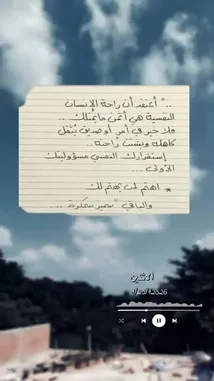 .." أعتقد أن راحة الإنسان
النفسية هي أثمن ما يملك ..
فلا خير في أمرٍ أو صديق يُثقل
كاهله ويشتت راحته ..
إستقرارك النفسي مسؤوليتك
الأولى ...
* اهتم لمن يهتم لك
والباقي "سمير سكرة ...
الاثنين